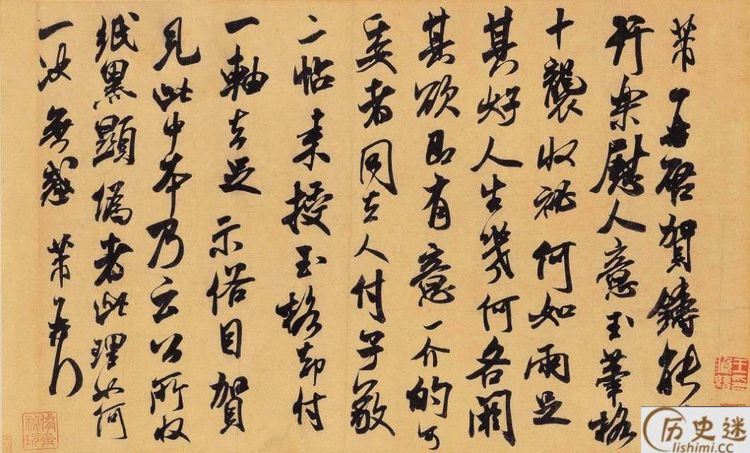 芾再啓賀鑄能
行樂慰人意玉筆格
十襲收秘何如兩足
其好人生幾何各闕
其欲即有意一介的可
委者同去人付子敬
二帖來授玉格却付
一軸去足示俗目賀
見此中本乃云公所收
紙黑顯偽者此理如何
一決無惑 芾再行
历史迷
lishimi.cc